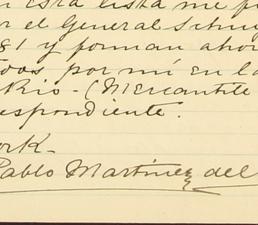 esta lista me f
r el General Schuy
81 y forman ahor
toos por mí en la
Rio-(Mercantile
respondiente.
ork-
Pablo Martinez del